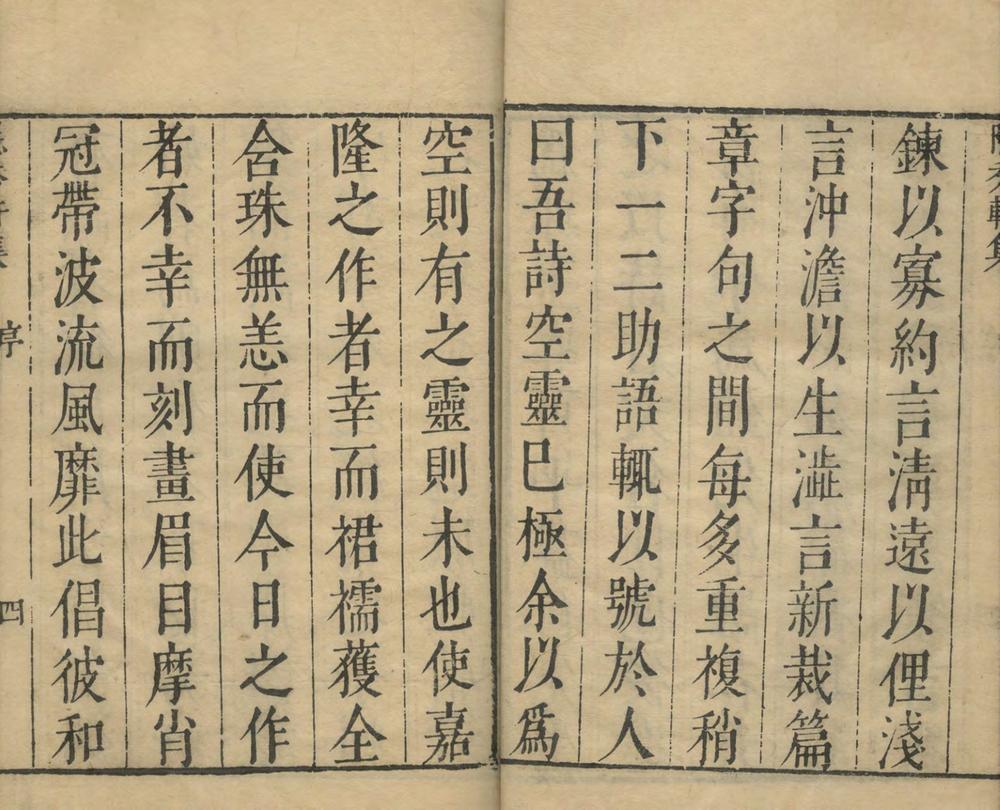 鍊以寡約言淸遠以俚淺
言沖澹以生澁言新裁篇
章字句之間每多重複稍
下一二助語輒以號於人
曰吾詩空靈已極余以爲
空則有之靈則未也使嘉
隆之作者幸而裙襦獲全
含珠無恙而使今日之作
者不幸而刻畫眉目摩肖
冠帶波流風靡此倡彼和
序
四